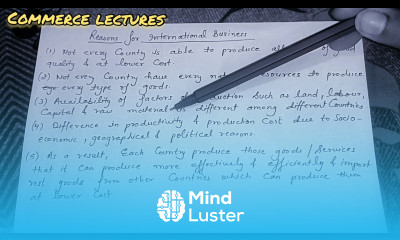 COMMERCE LECTURES
Reasons for International Business
(1) Not every Country is able to produce all of good
quality & at lower Cost.
(2) Not evry Country have every resources to produce
every type of goods.
(3) Availability of factors of production such as land, labour,
Capital & raw material is different among different Countries
(4) Difference in productivity & production Cost due to Socio-
economic, geographical & political reasons.
(5) As a result, Each Country produce those goods/Services
that it Can produce more effectively & efficiently & import
rest goods from other Countries which Can produce them
at lower Cost
Mind
Luster